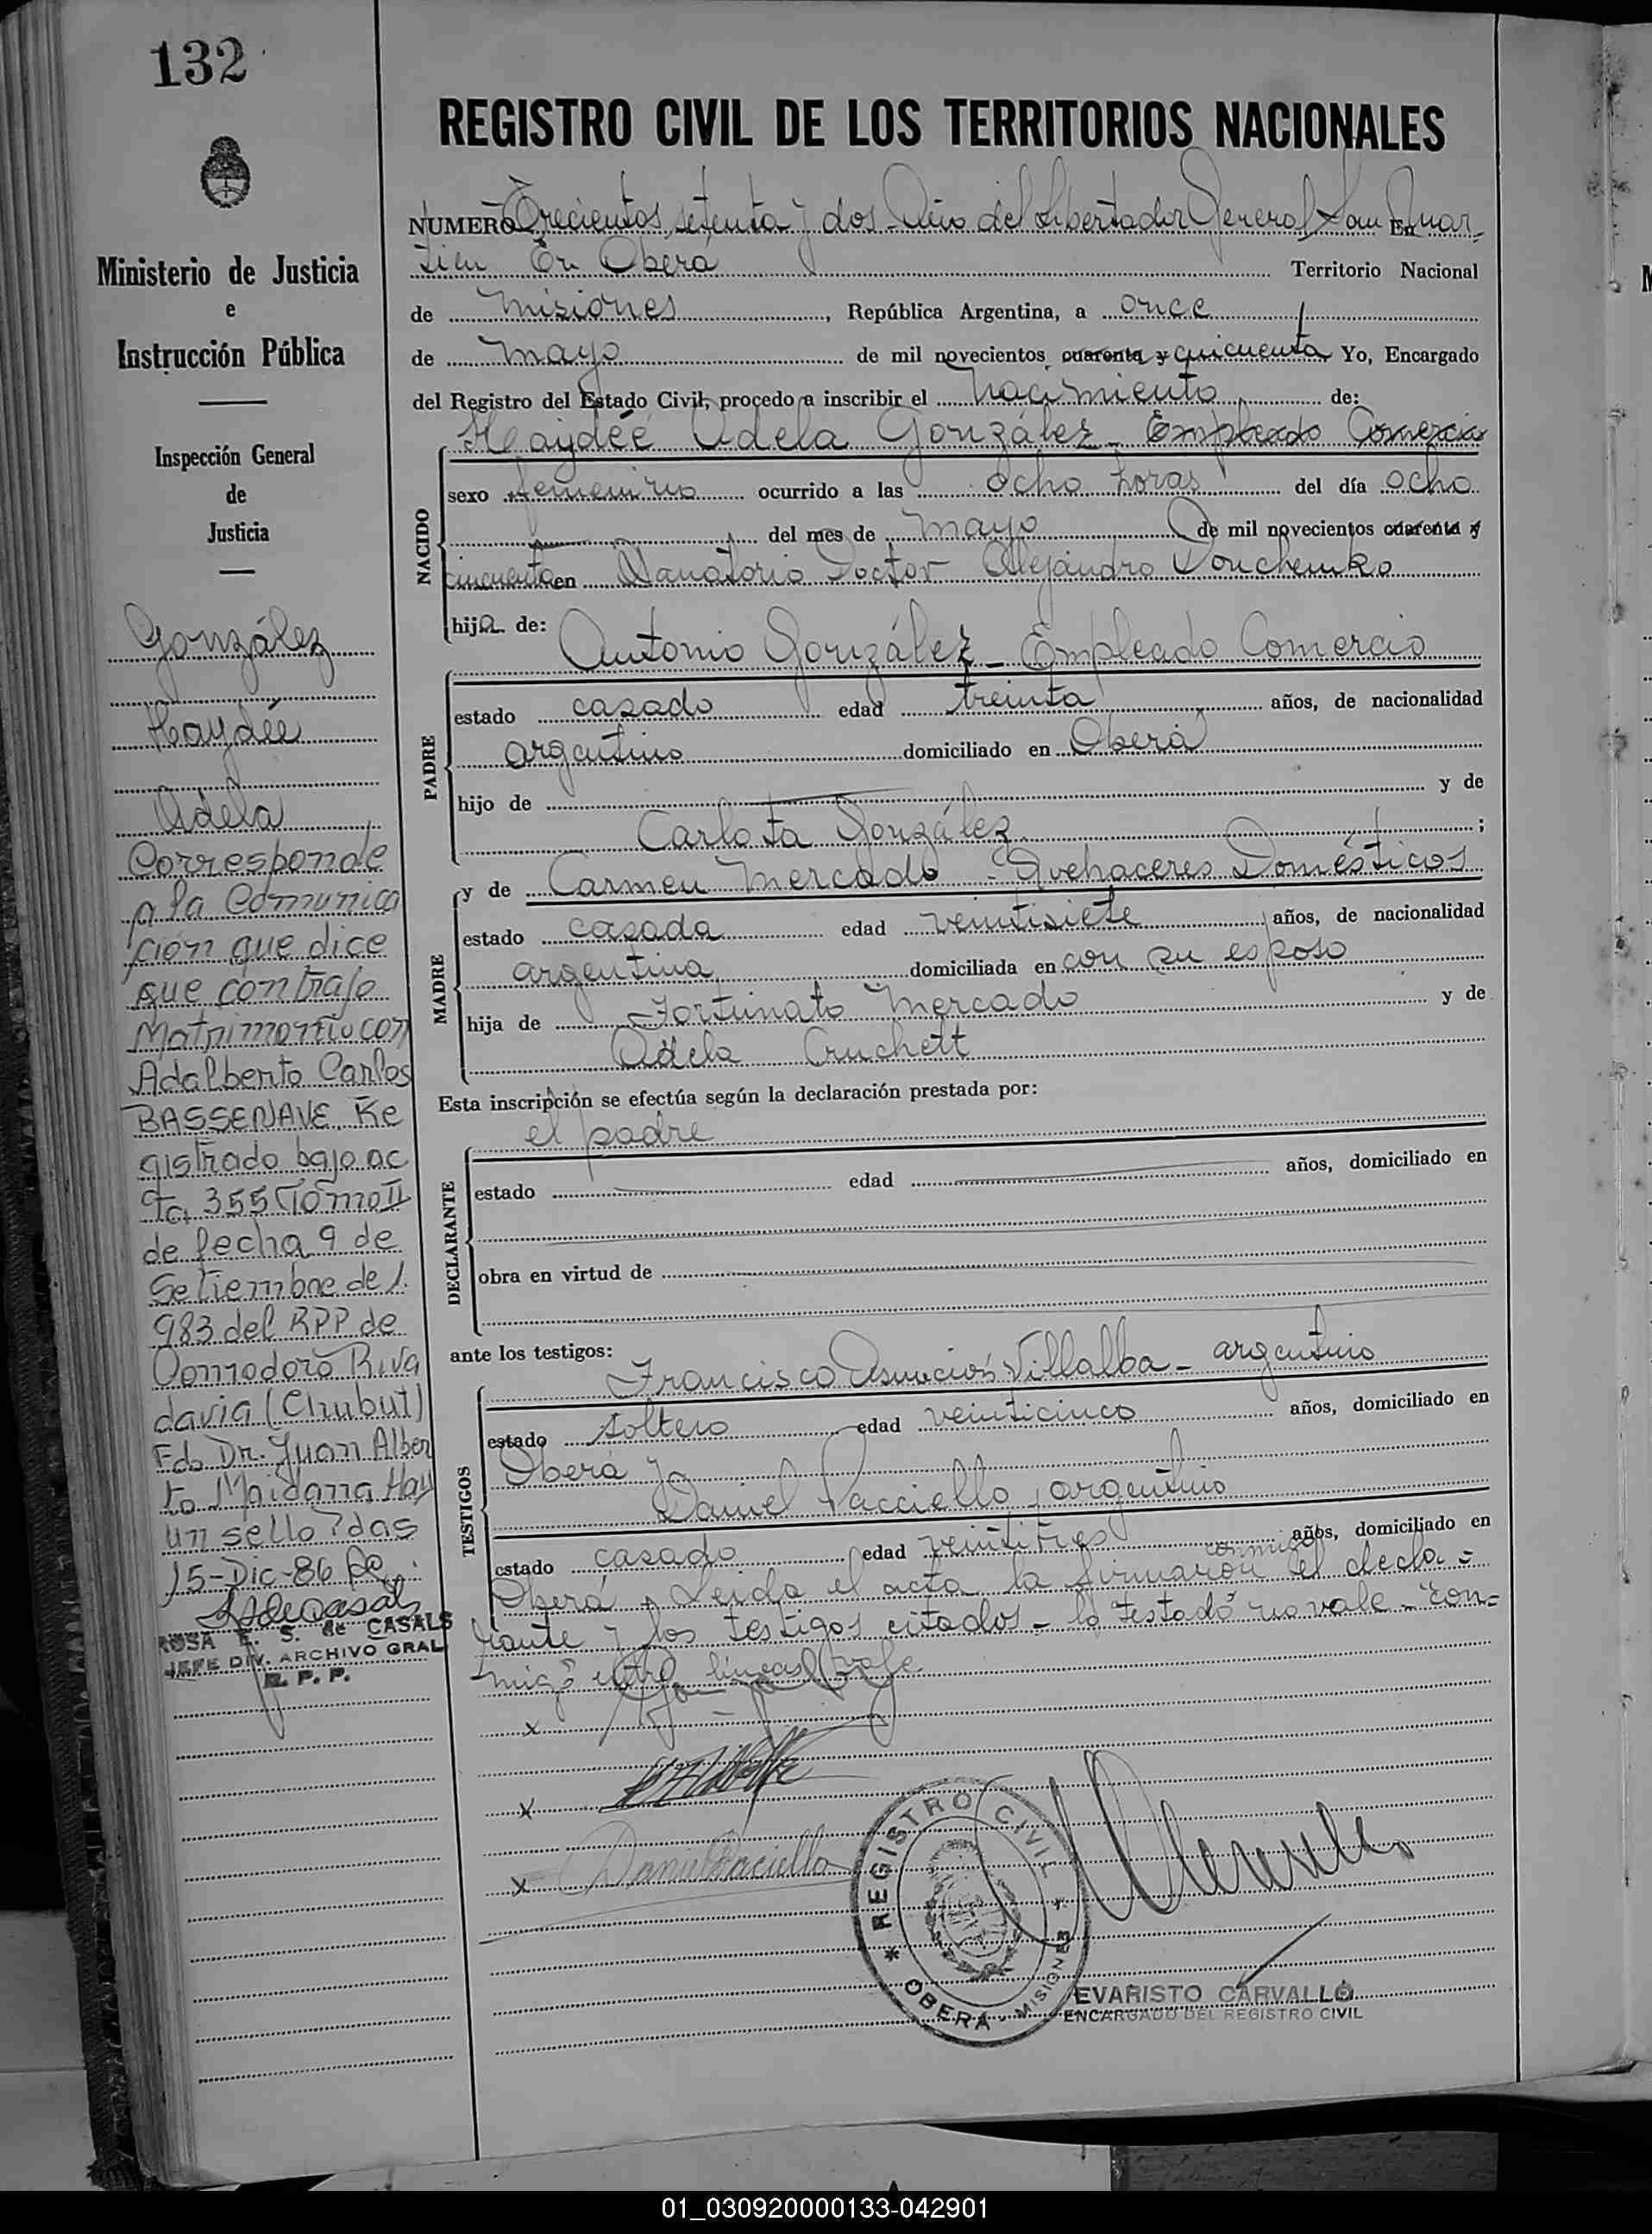 132
Ministerio de Justicia
e
Instrucción Pública
Inspección General
de
Justicia
González
Haydée
Adela
Corresponde
a la Comunica
ción que dice
que contrajo
Matrimonio con
Adalberto Carlos
BASSENAVE, Re
gistrado bajo ac
ta 355 Tomo II
de fecha 9 de
Setiembre de 1.
983 del RPP de
Comodoro Riva
davia (Chubut)
Fdo Dr. Juan Alber
to Maidana Hay
un sello
15-Dic-86
ROSA E. S. de CASALS
JEFE DIV. ARCHIVO GRAL
R. P. P.
REGISTRO CIVIL DE LOS TERRITORIOS NACIONALES
NUMERO Trecientos setenta y dos - Año del Libertador General San En Mar-
tin En Oberá Territorio Nacional
de Misiones, República Argentina, a once
de mayo de mil novecientos cuarenta y cincuenta Yo, Encargado
del Registro del Estado Civil, procedo a inscribir el nacimiento de:
Haydée Adela González - Empleado Comercio
NACIDO
sexo femenino ocurrido a las ocho horas del día ocho
del mes de mayo de mil novecientos cuarenta y
cincuenta en Sanatorio Doctor Alejandro Donchenko
hija de:
Antonio González - Empleado Comercio
PADRE
estado casado edad treinta años, de nacionalidad
argentino domiciliado en Oberá
hijo de y de
Carlota González ;
MADRE
y de Carmen Mercado - Quehaceres Domésticos
estado casada edad veintisiete años, de nacionalidad
argentina domiciliada en con su esposo
hija de Fortunato Mercado y de
Adela Cruchett
Esta inscripción se efectúa según la declaración prestada por:
el padre
DECLARANTE
estado edad años, domiciliado en
obra en virtud de
ante los testigos:
Francisco Asunción Villalba - argentino
TESTIGOS
estado soltero edad veinticinco años, domiciliado en
Oberá y
Daniel Pacciello, argentino
estado casado edad veintitres años, domiciliado en
conmigo
Oberá. Leida el acta la firmaron el decla-
rante y los testigos citados - lo testado no vale - "con-
migo" entre líneas vale
x
x
x Daniel Paciello
REGISTRO CIVIL
* OBERÁ - MISIONES *
EVARISTO CARVALLO
ENCARGADO DEL REGISTRO CIVIL
01_030920000133-042901